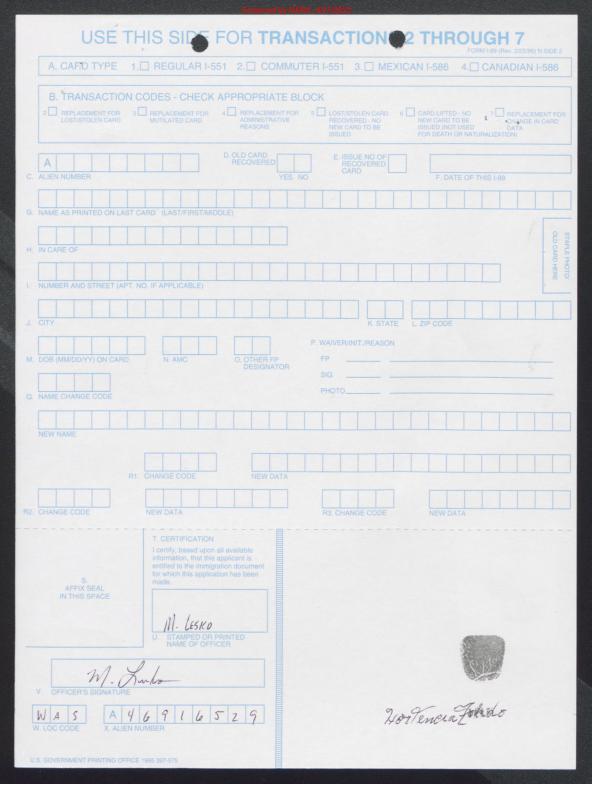 USE THIS SIDE FOR TRANSACTIONS 2 THROUGH 7
FORM I-89 (Rev. 2/23/96) N SIDE 2
A. CARD TYPE 1. REGULAR I-551 2. COMMUTER I-551 3. MEXICAN I-586 4. CANADIAN I-586
B. TRANSACTION CODES - CHECK APPROPRIATE BLOCK
2 REPLACEMENT FOR LOST/STOLEN CARD
3 REPLACEMENT FOR MUTILATED CARD
4 REPLACEMENT FOR ADMINISTRATIVE REASONS
5 LOST/STOLEN CARD RECOVERED - NO NEW CARD TO BE ISSUED
6 CARD LIFTED - NO NEW CARD TO BE ISSUED (NOT USED FOR DEATH OR NATURALIZATION)
7 REPLACEMENT FOR CHANGE IN CARD DATA
A
C. ALIEN NUMBER
D. OLD CARD RECOVERED
YES NO
E. ISSUE NO OF RECOVERED CARD
F. DATE OF THIS I-89
G. NAME AS PRINTED ON LAST CARD (LAST/FIRST/MIDDLE)
STAPLE PHOTO/
OLD CARD HERE
H. IN CARE OF
I. NUMBER AND STREET (APT. NO. IF APPLICABLE)
J. CITY
K. STATE
L. ZIP CODE
M. DOB (MM/DD/YY) ON CARD
N. AMC
O. OTHER FP DESIGNATOR
P. WAIVER/INIT./REASON
FP
SIG.
PHOTO
Q. NAME CHANGE CODE
NEW NAME
R1. CHANGE CODE
NEW DATA
R2. CHANGE CODE
NEW DATA
R3. CHANGE CODE
NEW DATA
S.
AFFIX SEAL
IN THIS SPACE
T. CERTIFICATION
I certify, based upon all available
information, that this applicant is
entitled to the immigration document
for which this application has been
made.
M. LESKO
U. STAMPED OR PRINTED
NAME OF OFFICER
M. Lesko
V. OFFICER'S SIGNATURE
WAS
W. LOC CODE
A 46916529
X. ALIEN NUMBER
Hortencia
U.S. GOVERNMENT PRINTING OFFICE 1996 397-575